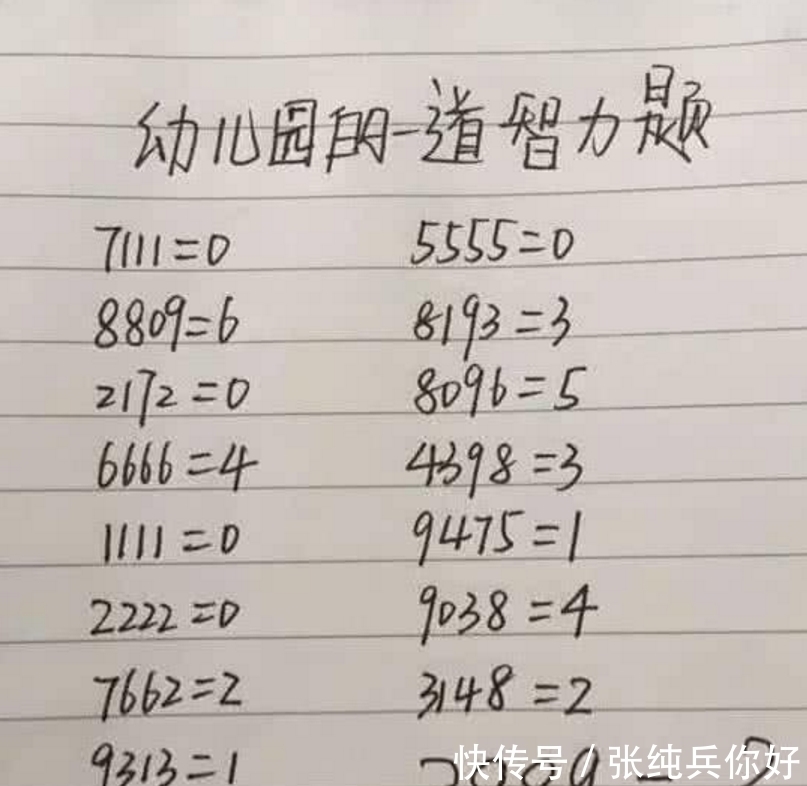 幼儿园的一道智力题
7111=0 5555=0
8809=6 8193=3
2172=0 8096=5
6666=4 4398=3
1111=0 9475=1
2222=0 9038=4
7662=2 3148=2
9313=1
快传号/张纯兵你好